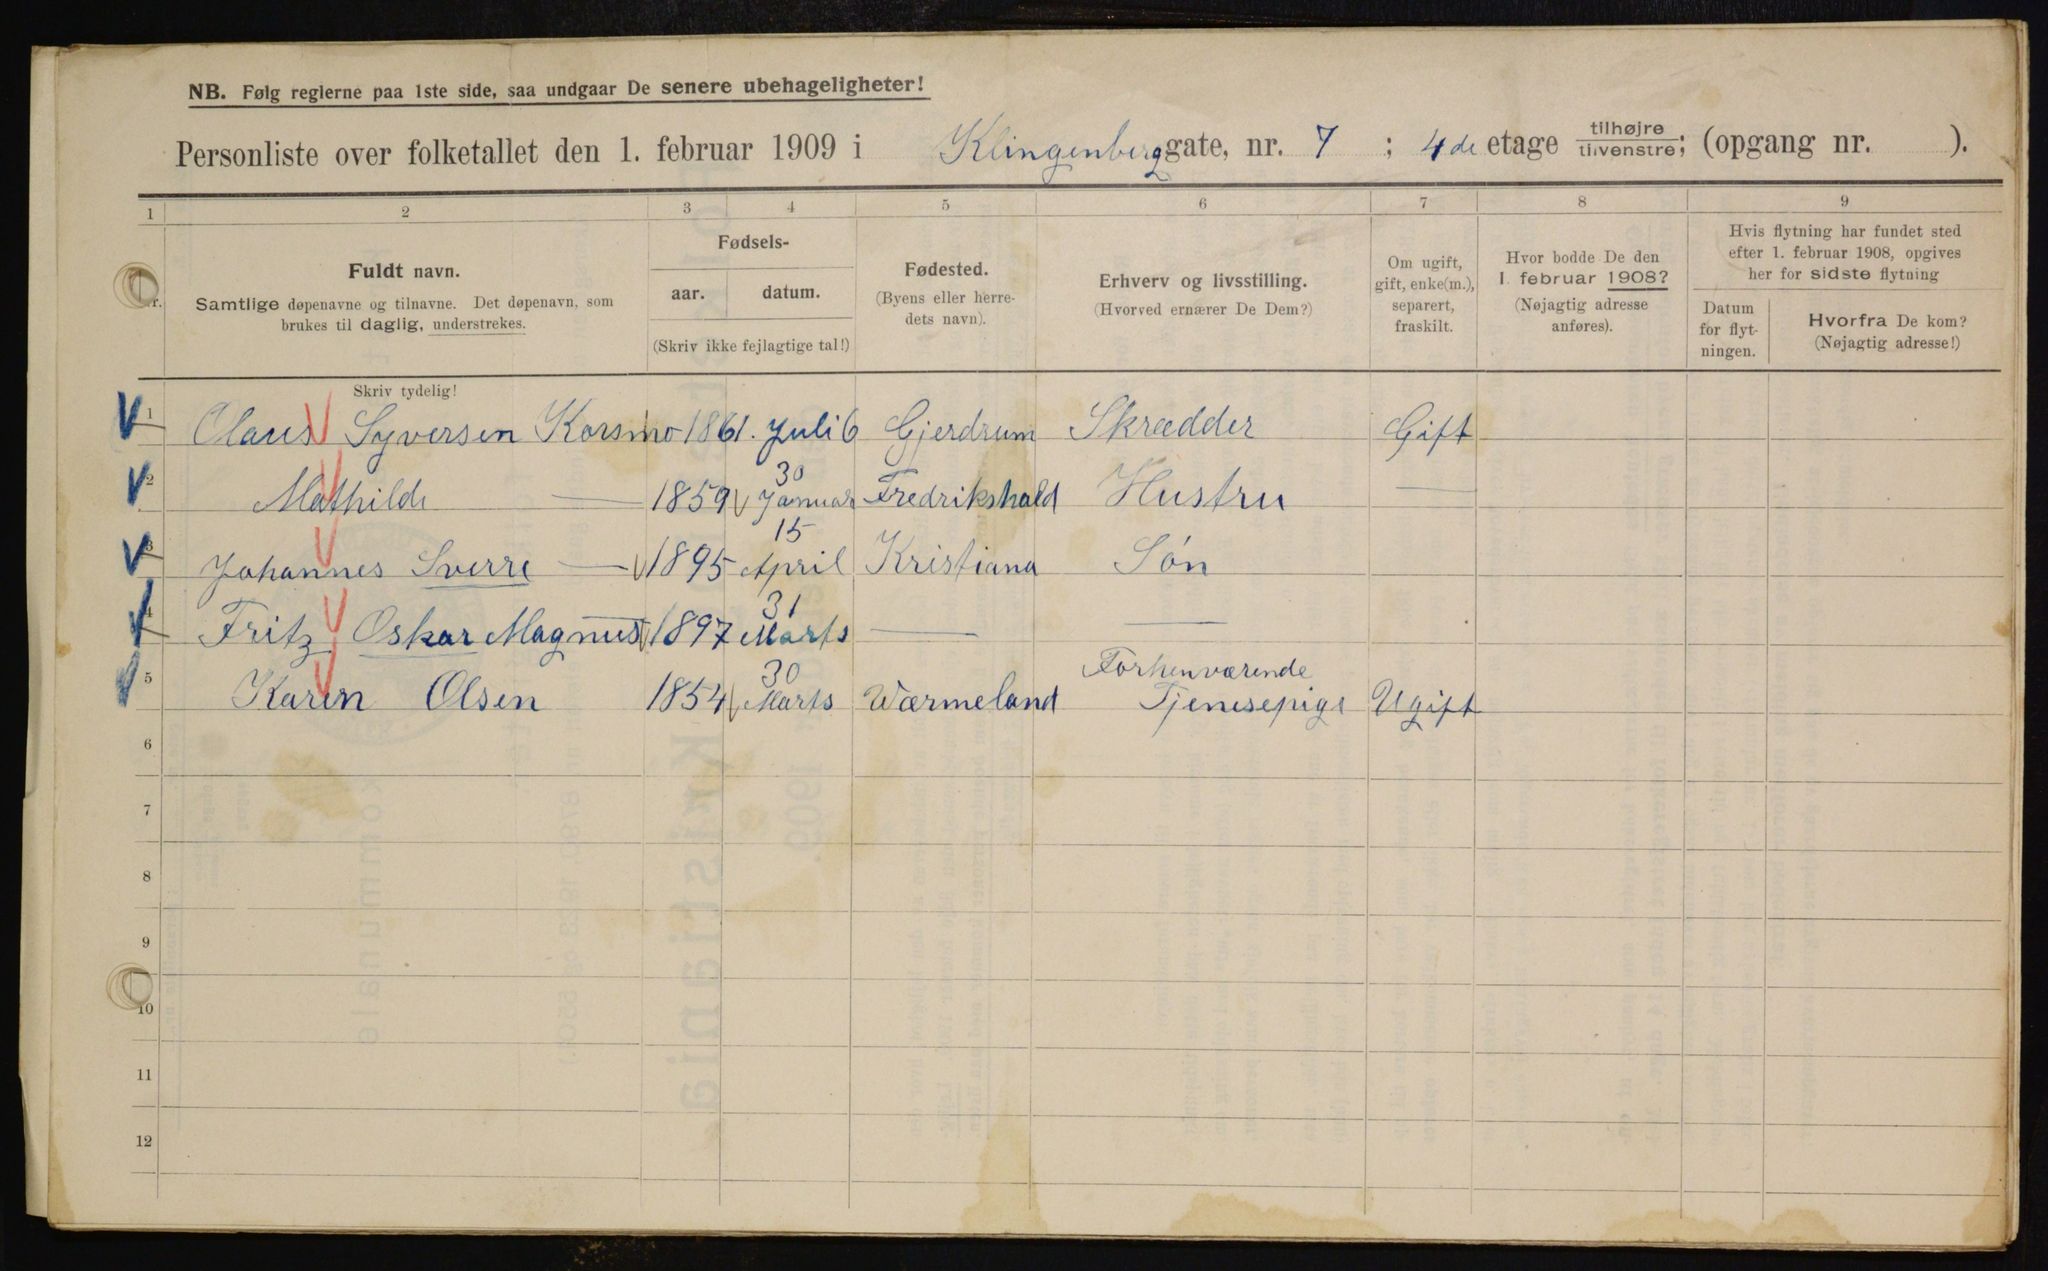 NB. Følg reglerne paa 1ste side, saa undgaar De senere ubehageligheter!
Personliste over folketallet den 1. februar 1909 i Klingenberg gate, nr. 7 ; 4de etage tilhøjre tilvenstre; (opgang nr. ).
1 2 3 4 5 6 7 8 9
Fuldt navn.
Samtlige døpenavne og tilnavne. Det døpenavn, som
brukes til daglig, understrekes.
Skriv tydelig!
Fødsels-
aar. datum.
(Skriv ikke fejlagtige tal!)
Fødested.
(Byens eller herre-
dets navn).
Erhverv og livsstilling.
(Hvorved ernærer De Dem?)
Om ugift,
gift, enke(m.),
separert,
fraskilt.
Hvor bodde De den
1. februar 1908?
(Nøjagtig adresse
anføres).
Hvis flytning har fundet sted
efter 1. februar 1908, opgives
her for sidste flytning
Datum
for flyt-
ningen.
Hvorfra De kom?
(Nøjagtig adresse!)
1 Olaus Syversen Korsmo 1861. Juli 6 Gjerdrum Skrædder Gift
2 Mathilde — 1859 30 Januar Fredrikshald Hustru —
3 Johannes Sverre — 1895 15 April Kristiana Søn
4 Fritz Oskar Magnus 1897 31 Marts — —
5 Karen Olsen 1854 30 Marts Wærmeland Forhenværende Tjenesepige Ugift
6
7
8
9
10
11
12